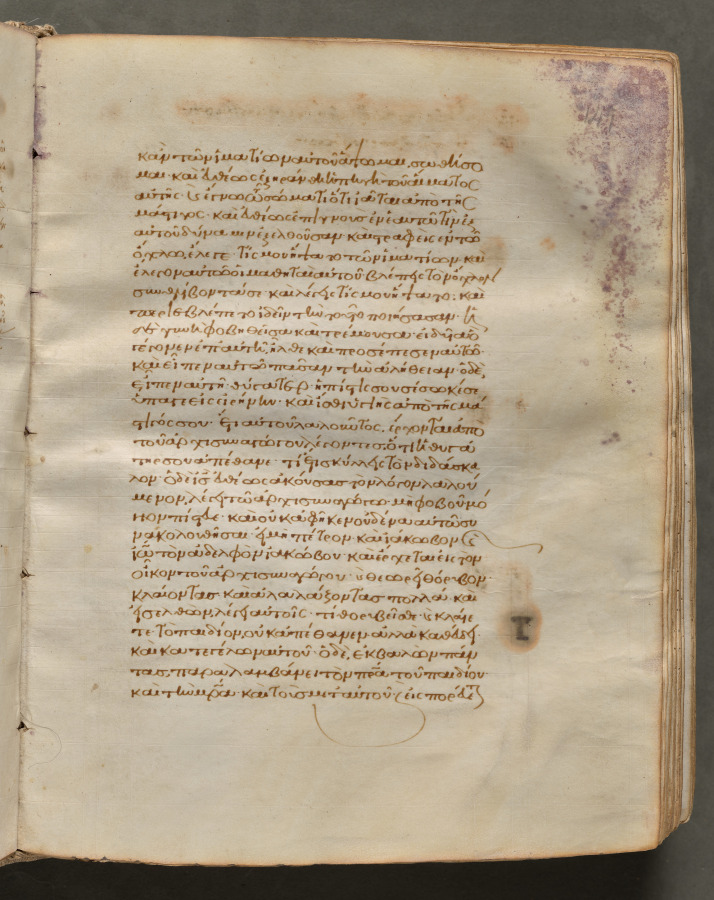 κἂν τῶν ἱματίων αὐτοῦ ἅψωμαι, σωθήσο
μαι· καὶ εὐθέως ἐξηράνθη ἡ πηγὴ τοῦ αἵματος
αὐτῆς· καὶ ἔγνω τῷ σώματι ὅτι ἴαται ἀπὸ τῆς
μάστιγος· καὶ εὐθέως ἐπιγνοὺς ἐν ἑαυτῶ τὴν ἐξ
αὐτοῦ δύναμιν ἐξελθοῦσαν· καὶ στραφεὶς ἐν τῶ
ὄχλω, ἔλεγε· τίς μου ἥψατο τῶν ἱματίων· καὶ
ἔλεγον αὐτῶ οἱ μαθηταὶ αὐτοῦ· βλέπεις τὸν ὄχλον
συνθλίβοντά σε· καὶ λέγεις τίς μου ἥψατο· καὶ
περιεβλέπετο ἰδεῖν τὴν τοῦτο ποιήσασαν· ἡ
δὲ γυνὴ φοβηθεῖσα καὶ τρέμουσα· εἰδυῖα ὃ
γέγονεν ἐπ' αὐτῆ, ἦλθε καὶ προσέπεσεν αὐτῶ·
καὶ εἶπεν αὐτῶ πᾶσαν τὴν ἀλήθειαν· ὁ δὲ,
εἶπεν αὐτῆ· θύγατερ· ἡ πίστις σου σέσωκέ σε
ὕπαγε εἰς εἰρήνην· καὶ ἴσθι ὑγιὴς ἀπὸ τῆς μά
στιγός σου· ἔτι αὐτοῦ λαλοῦντος, ἔρχονται ἀπὸ
τοῦ ἀρχισυναγώγου λέγοντες· ὅτι ἡ θυγά
τηρ σου ἀπέθανε· τί ἔτι σκύλλεις τὸν διδάσκα
λον· ὁ δὲ ἰ̅ς̅ εὐθέως ἀκούσας τὸν λόγον λαλού
μενον, λέγει τῶ ἀρχισυναγώγω· μὴ φοβοῦ μό
νον πίστευε· καὶ οὐκ ἀφῆκεν οὐδένα αὐτῶ συ
νακολουθῆσαι· εἰ μὴ πέτρον· καὶ ἰάκωβον· καὶ
ἰω̅ τὸν ἀδελφὸν ἰακώβου· καὶ ἔρχεται εἰς τὸν
οἶκον τοῦ ἀρχισυναγώγου· καὶ θεωρεῖ θόρυβον·
κλαίοντας καὶ ἀλαλάζοντας πολλά· καὶ
εἰσελθὼν, λέγει αὐτοῖς· τί θορυβεῖσθε καὶ κλαίε
τε· τὸ παιδίον, οὐκ ἀπέθανεν ἀλλὰ καθεύδει·
καὶ κατεγέλων αὐτοῦ· ὁ δὲ, ἐκβαλὼν πάν
τας, παραλαμβάνει τὸν π̅ρ̅α̅ τοῦ παιδίου
καὶ τὴν μ̅ρ̅α̅· καὶ τοὺς μετ' αὐτοῦ· καὶ εἰσπορεύε